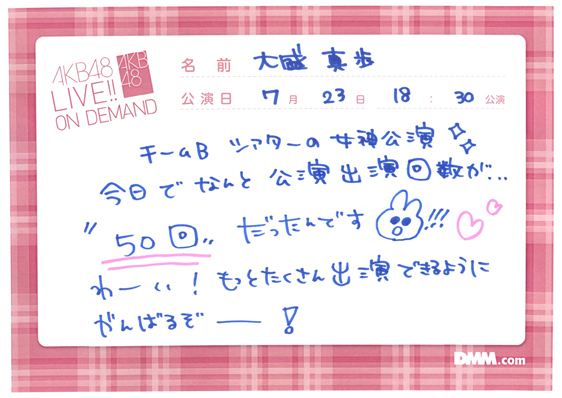 AKB48
LIVE!!
ON DEMAND
AKB
48
名前 大盛 真歩
公演日 7月 23日 18:30公演
チームB シアターの女神公演
今日でなんと 公演出演回数が...
"50回" だったんです!!!
わーい! もっとたくさん出演できるように
がんばるぞ——!
DMM.com